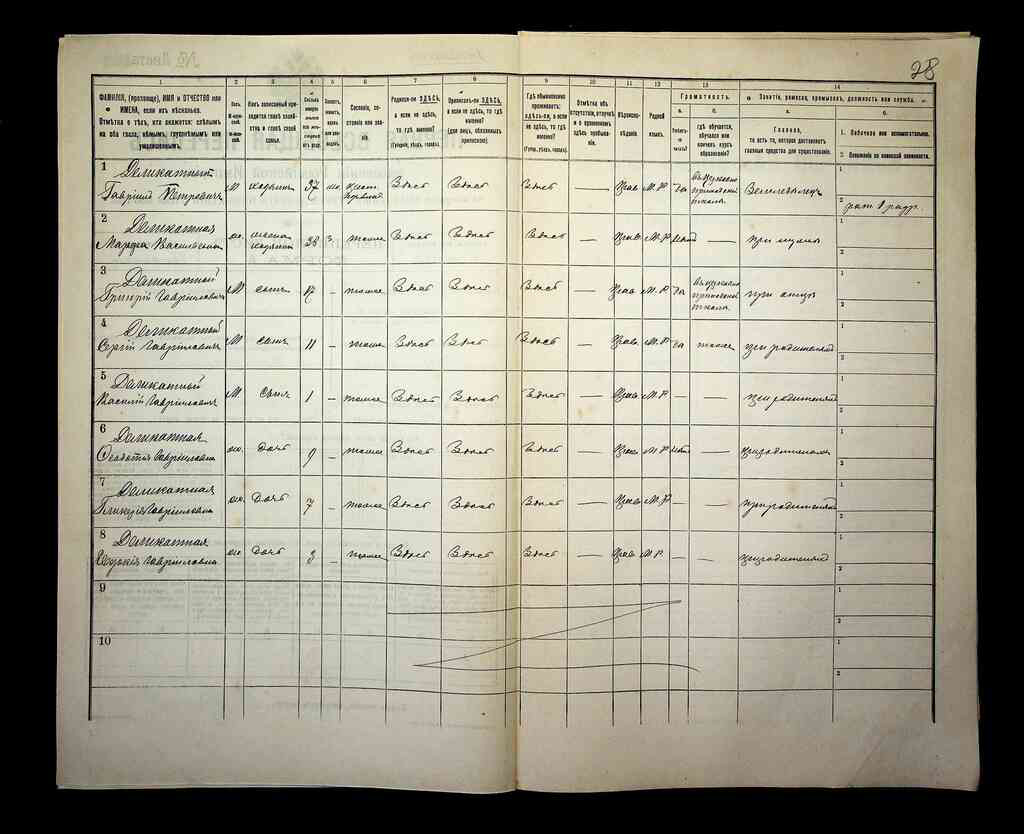 28
1 2 3 4 5 6 7 8 9 10 11 12 13 14
ФАМИЛІЯ, (прозвище), ИМЯ и ОТЧЕСТВО или
ИМЕНА, если ихъ нѣсколько.
Отмѣтка о тѣхъ, кто окажется: слѣпымъ
на оба глаза, нѣмымъ, глухонѣмымъ или
умалишеннымъ.
Полъ.
Какъ записанный при-
ходится главѣ хозяй-
ства и главѣ своей
семьи.
Сословіе, со-
стояніе или зва-
ніе.
Родился-ли ЗДѢСЬ,
а если не здѣсь,
то гдѣ
именно?
(Губернія, уѣздъ, городъ).
Приписанъ-ли ЗДѢСЬ,
а если не здѣсь, то гдѣ
именно?
(для лицъ, обязанныхъ
припискою).
Гдѣ обыкновенно
проживаетъ:
здѣсь-ли,
а если
не здѣсь, то гдѣ
именно?
(Губ., уѣздъ, городъ).
Отмѣтка объ
отсутствіи, отлучкѣ
и о временномъ
здѣсь пребыва-
ніи.
Вѣроиспо-
вѣданіе.
Родной
языкъ.
Грамотность.
а.
Умѣетъ-
ли
читать?
б.
гдѣ обучается,
обучался или
кончилъ курсъ
образованія?
Занятіе, ремесло, промыселъ, должность или служба.
а.
Главное,
то есть то, которое доставляетъ
главныя средства для существованія.
б.
1. Побочное или вспомогательное.
2. Положеніе по воинской повинности.
1 Деликатный
Гавріилъ Петровичъ М хозяинъ 37 Здѣсь Здѣсь Здѣсь Прав М.Р да Земледѣлецъ 1
2
2 Деликатная
Марфа Васильевна 38 з. тоже Здѣсь Здѣсь Здѣсь — Прав М.Р — при мужѣ 1
2
3 Деликатной
Григорій Гавріиловичъ М сынъ — тоже Здѣсь Здѣсь Здѣсь — Прав М.Р да при отцѣ 1
2
4 Деликатный
Сергій Гавріиловичъ М сынъ 11 — тоже Здѣсь Здѣсь Здѣсь — Прав М.Р да тоже при родителяхъ 1
2
5 Деликатной
Василій Гавріиловичъ М сынъ 1 — тоже Здѣсь Здѣсь Здѣсь — Прав М.Р — — при родителяхъ 1
2
6 Деликатная
Гавріиловна дочь 9 — тоже Здѣсь Здѣсь Здѣсь — Прав М.Р — при родителяхъ 1
2
7 Деликатная
Гликерія Гавріиловна дочь 7 — тоже Здѣсь Здѣсь Здѣсь — Прав М.Р — — при родителяхъ 1
2
8 Деликатная
Гавріиловна дочь 3 — тоже Здѣсь Здѣсь Здѣсь — Прав М.Р — — при родителяхъ 1
2
9 1
2
10 1
2